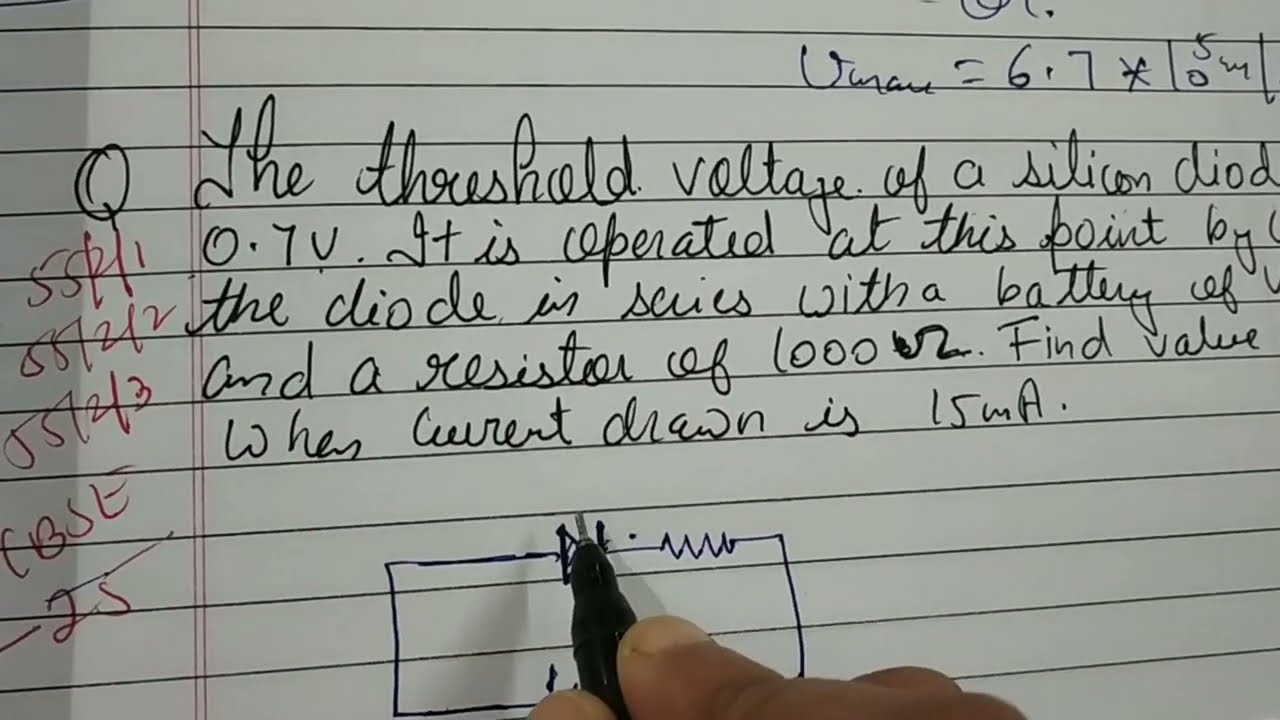 Or.
Vmax = 6.7 * 10^5 m
Q The threshold voltage of a silicon diod
0.7V. It is operated at this point by
the diode in series with a battery of V
and a resistor of 1000 Ω. Find value
When current drawn is 15mA.
55/2/1
55/2/2
55/2/3
CBSE
25